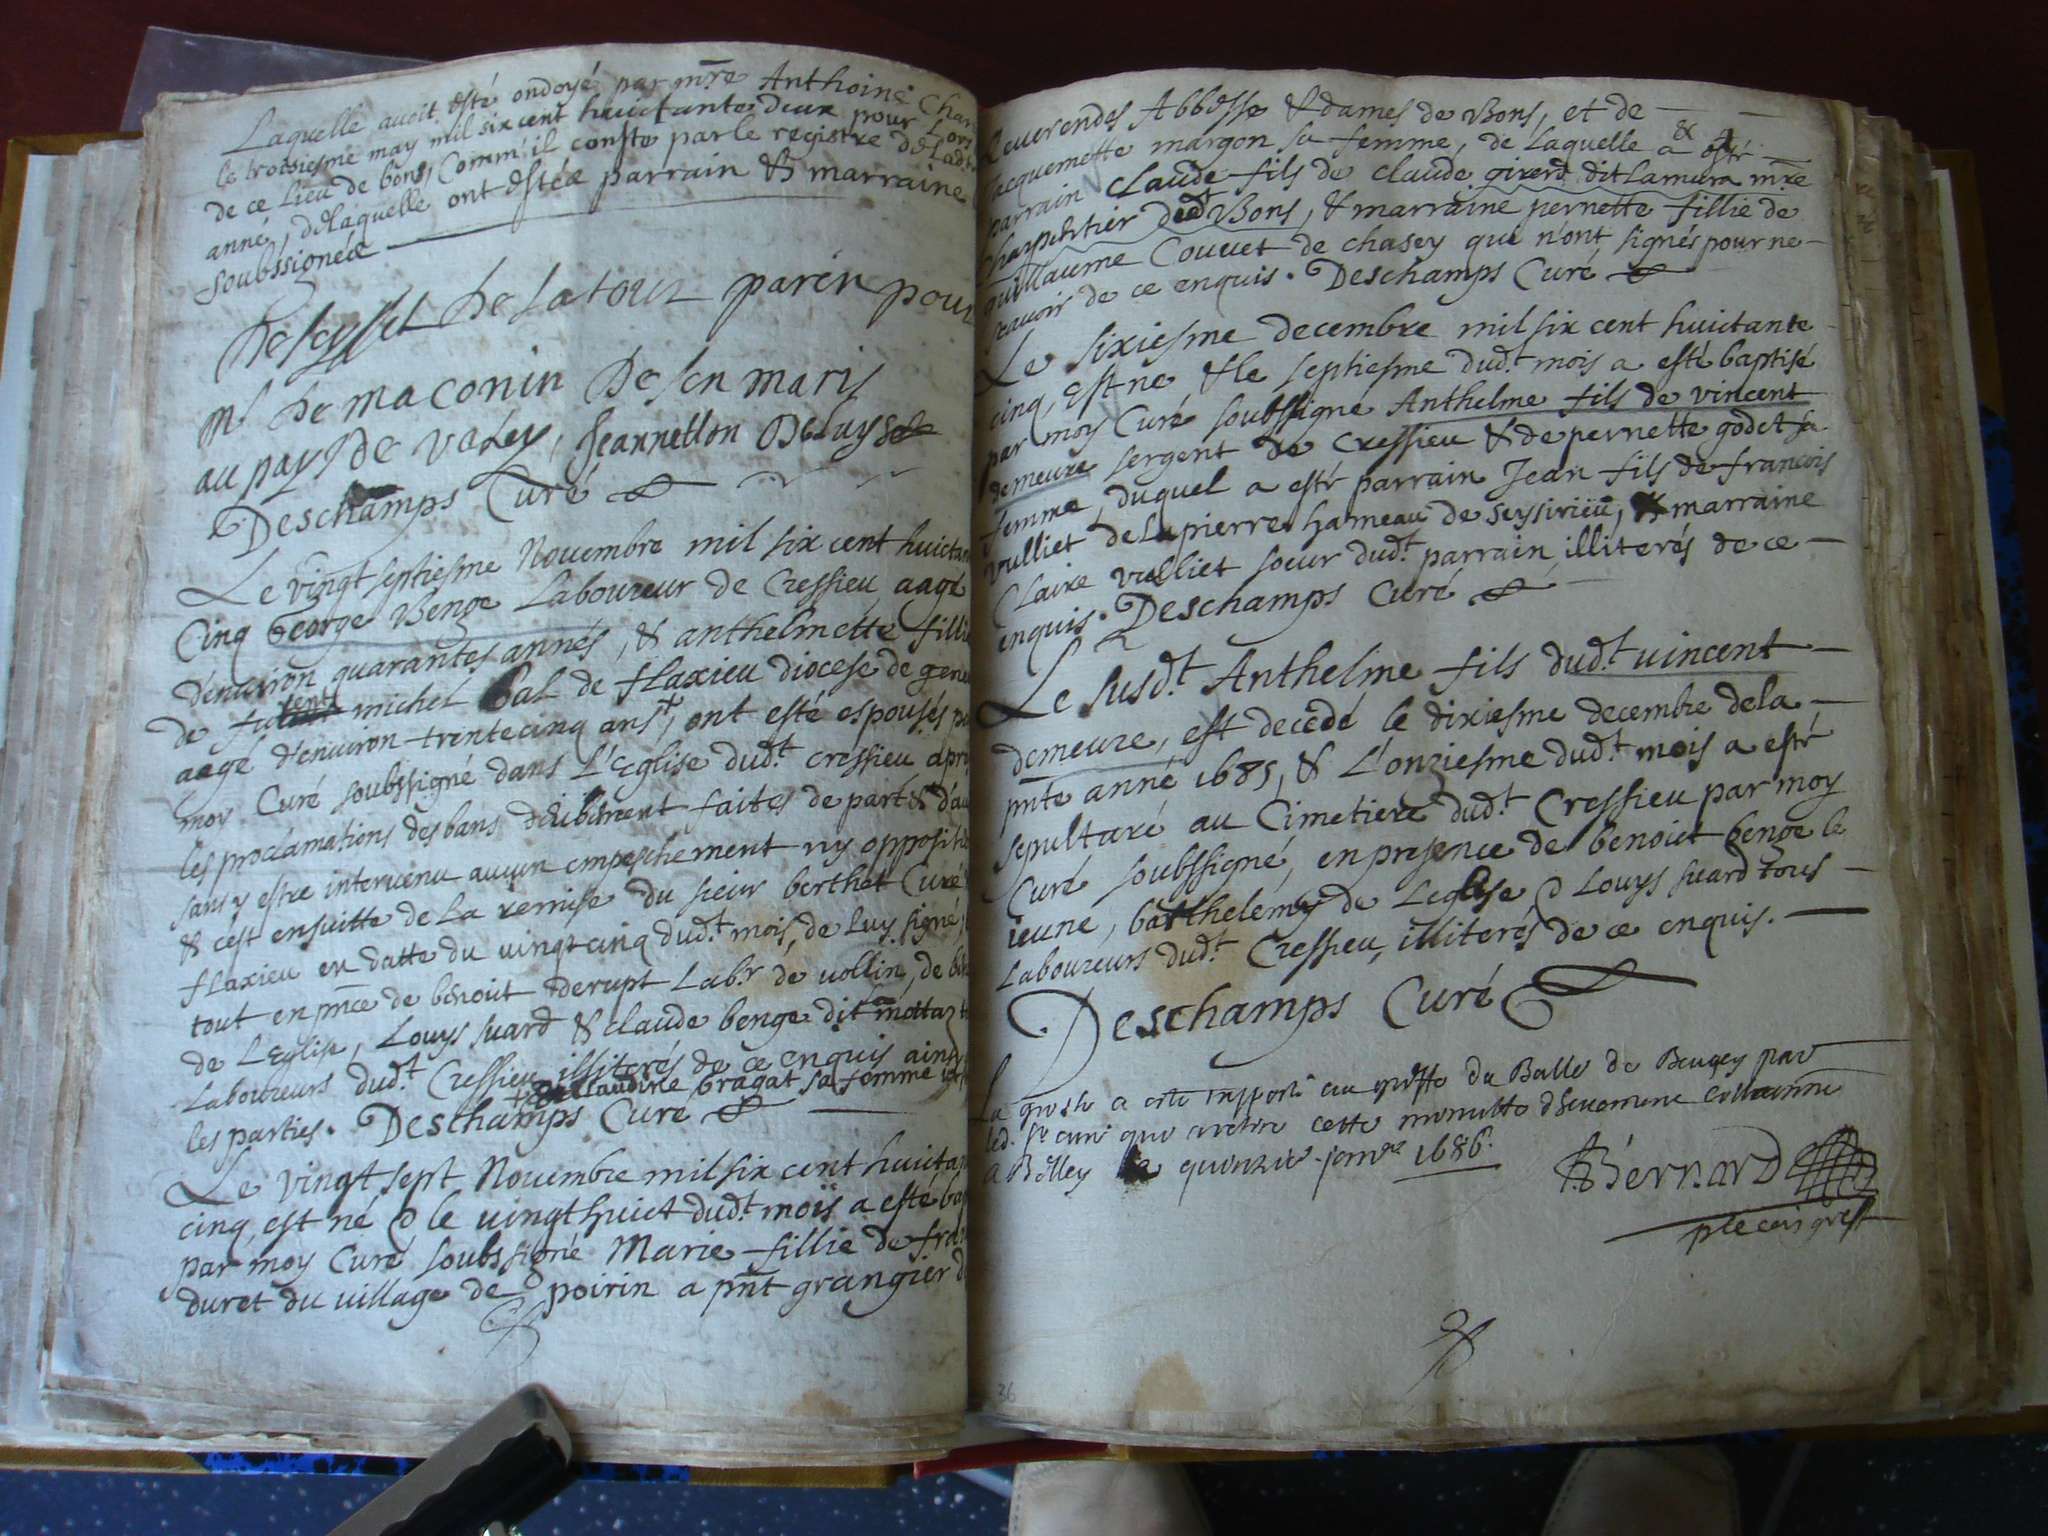 Laquelle avoit esté ondoyé par mre Anthoine
le troisiesme may mil six cent huictante deux pour Lors
de ce Lieu de bons Comm'il conste par le registre de
anné, de laquelle ont estée parrain & marraine
soubssignée
De seyssel De Latour parin pour
Mr De maconin De sen maris
au pays de valey, Jeannetton
Deschamps Curé
Le vingt septiesme Novembre mil six cent huictan
Cinq George Benge Laboureur de Cressieu aagé
d'environ quarantes annés, & anthelmette fillie
de michel bal de flaxieu diocese de gene
aagé d'environ trente cinq ans, ont esté espousés p
moy Curé soubssigné dans L'Eglise dud.t cressieu apr
les proclamations des bans deübement faites de part & d'au
sans y estre intervenu aucun empeschement ny opposit
& c'est ensuitte de La remise du sieur berthet Curé
flaxieu en datte du vingt cinq dud.t mois, de luy signé
tout en pnce de benoit derupt Labr de vollin, de
de L'Eglise, Louys suard & claude benge dit mottaz
Laboureurs dud.t Cressieu illiterés de ce enquis ains
Claudine bragat sa femme
les parties. Deschamps Curé
Le vingt sept Novembre mil six cent huictan
cinq, est né & le vingt huict dud.t mois a esté bap
par moy Curé soubssigné Marie fillie de fran
duret du village de poirin a pnt grangier d
Reverendes Abbesse & dames de Bons, et de
Jacquemette margon sa femme, de Laquelle a esté
parrain Claude fils de claude girerd dit Lamura mre
charpentier dud.t Bons, & marraine pernette fillie de
guillaume Couvet de chasey qui n'ont signés pour ne
scavoir de ce enquis. Deschamps Curé
Le sixiesme decembre mil six cent huictante
cinq, est ne & le septiesme dud.t mois a esté baptisé
par moy Curé soubssigné Anthelme fils de vincent
demeure sergent de Cressieu & de pernette godet sa
femme, duquel a esté parrain Jean fils de francois
vulliet de Lapierre hameau de seysirieu, & marraine
Claire vulliet soeur dud.t parrain illiterés de ce
enquis. Deschamps Curé
Le susd.t Anthelme fils dud.t vincent
demeure, est decedé le dixiesme decembre dela
pnte anné 1685, & L'onziesme dud.t mois a esté
sepulturé au Cimetiere dud.t Cressieu par moy
Curé soubssigné, en presence de benoict benge le
ieune, barthelemy de Leglise & Louys suard tous
Laboureurs dud.t Cressieu, illiterés de ce enquis.
Deschamps Curé
La grosse a esté rapporté au greffe du Balle de Beugey par
led. sr curé que a retiré cette
a Belley le quinzie janvr 1686.
Bernard
36